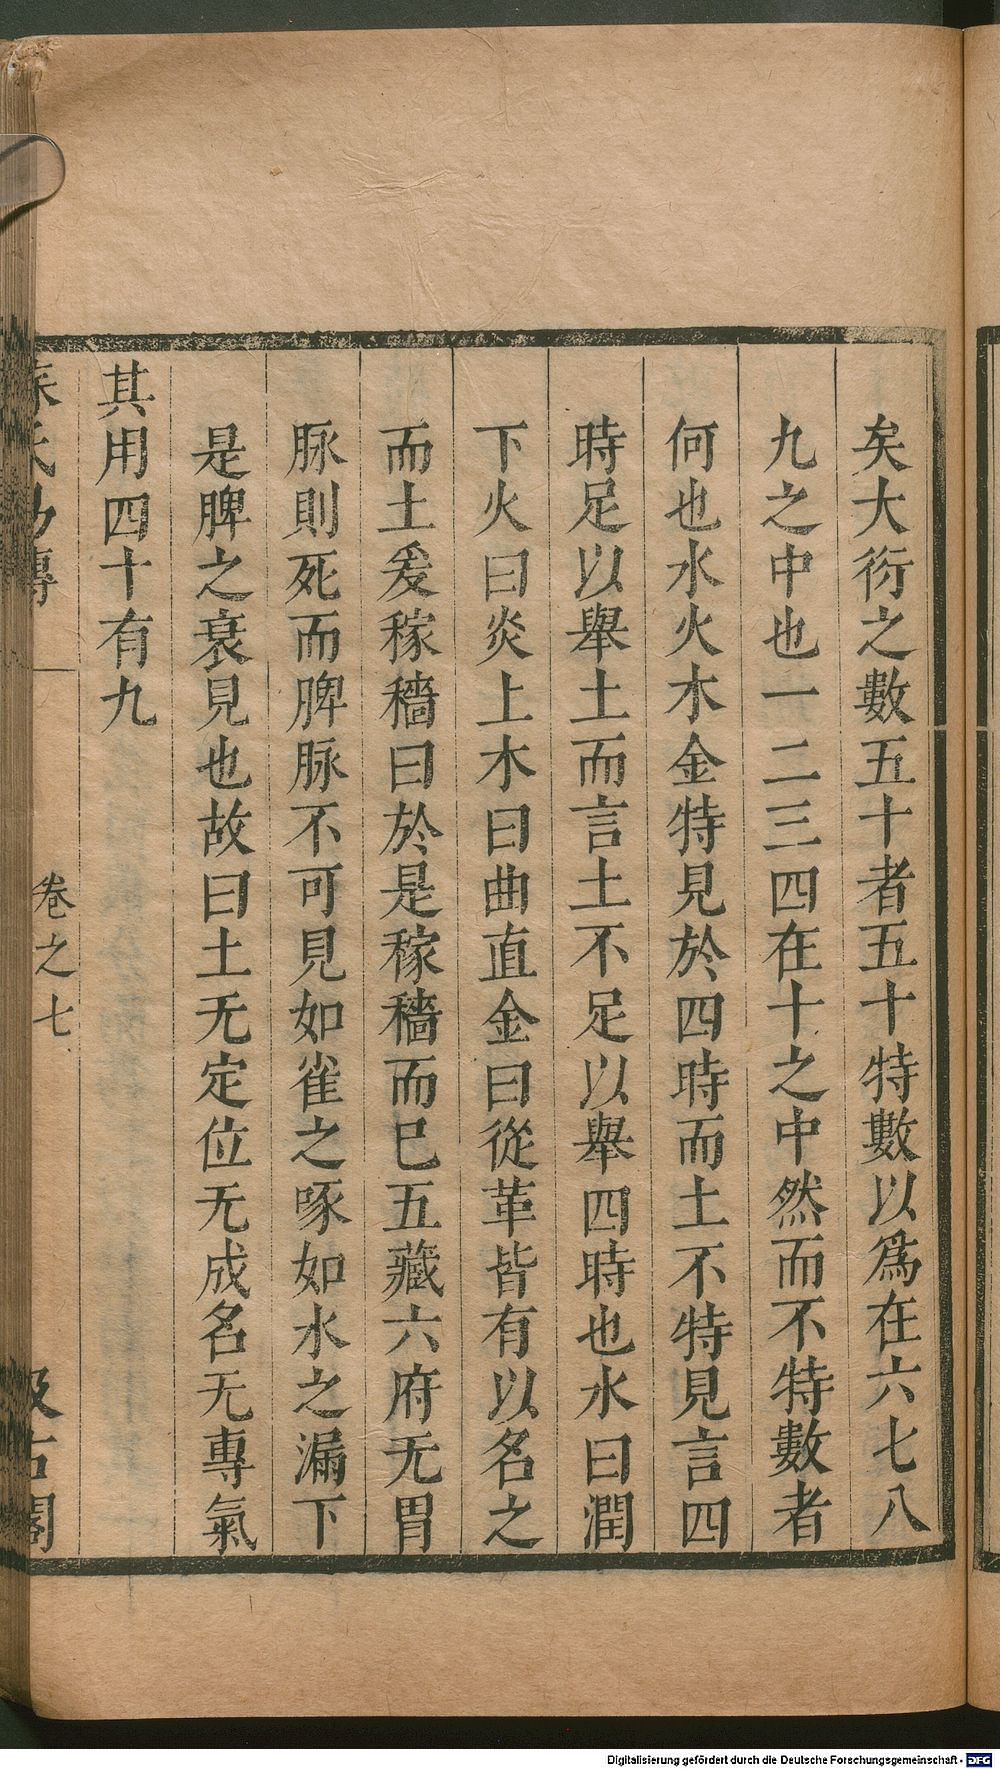 矣大衍之數五十者五十特數以爲在六七八
九之中也一二三四在十之中然而不特數者
何也水火木金特見於四時而土不特見言四
時足以舉土而言土不足以舉四時也水曰潤
下火曰炎上木曰曲直金曰從革皆有以名之
而土爰稼穡曰於是稼穡而已五藏六府无胃
脉則死而脾脉不可見如雀之啄如水之漏下
是脾之衰見也故曰土无定位无成名无專氣
其用四十有九
蘇氏易傳
卷之七
汲古閣
Digitalisierung gefördert durch die Deutsche Forschungsgemeinschaft - DFG